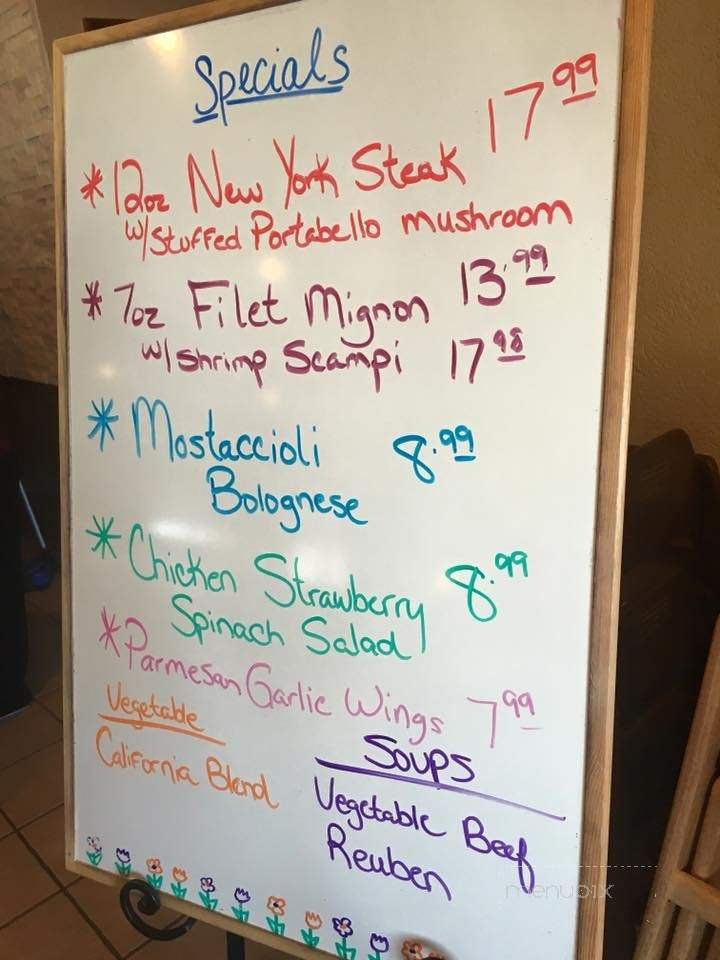 Specials
* 12oz New York Steak 17 99
w/ Stuffed Portabello mushroom
* 7oz Filet Mignon 13.99
w/ Shrimp Scampi 17 98
* Mostaccioli 8.99
Bolognese
* Chicken Strawberry 8.99
Spinach Salad
* Parmesan Garlic Wings 7 99
Vegetable
California Blend
Soups
Vegetable Beef
Reuben
menupix